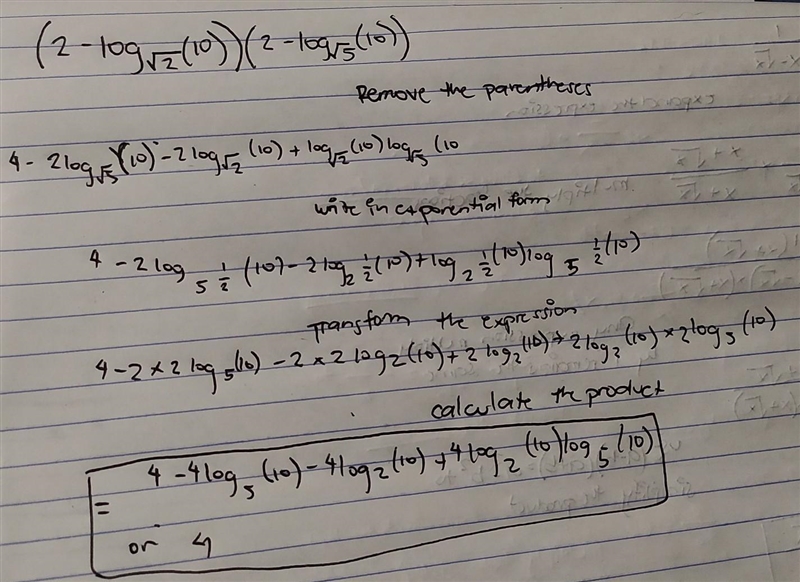 (2 - log√2 (10)) (2 - log√5 (10))
Remove the parentheses
4 - 2log√5 (10) - 2log√2 (10) + log√2 (10) log√5 (10
write in exponential form
4 - 2log 5 1/2 (10) - 2log 2 1/2 (10) + log 2 1/2 (10) log 5 1/2 (10)
Transform the expression
4 - 2 × 2log5 (10) - 2 × 2log2 (10) + 2log2 (10) + 2log2 (10) × 2log5 (10)
calculate the product
= 4 - 4log5 (10) - 4log2 (10) + 4log2 (10) log5 (10)
or 4